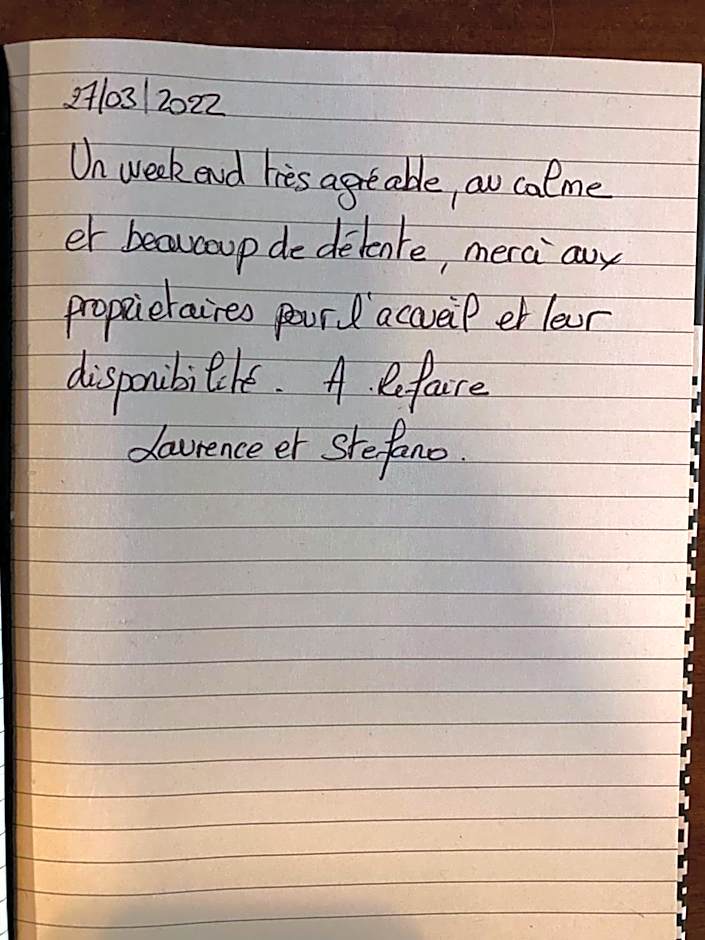 27/03/2022
Un week end très agréable, au calme
et beaucoup de détente, merci aux
propriétaires pour l'accueil et leur
disponibilité. A Refaire
Laurence et Stefano.